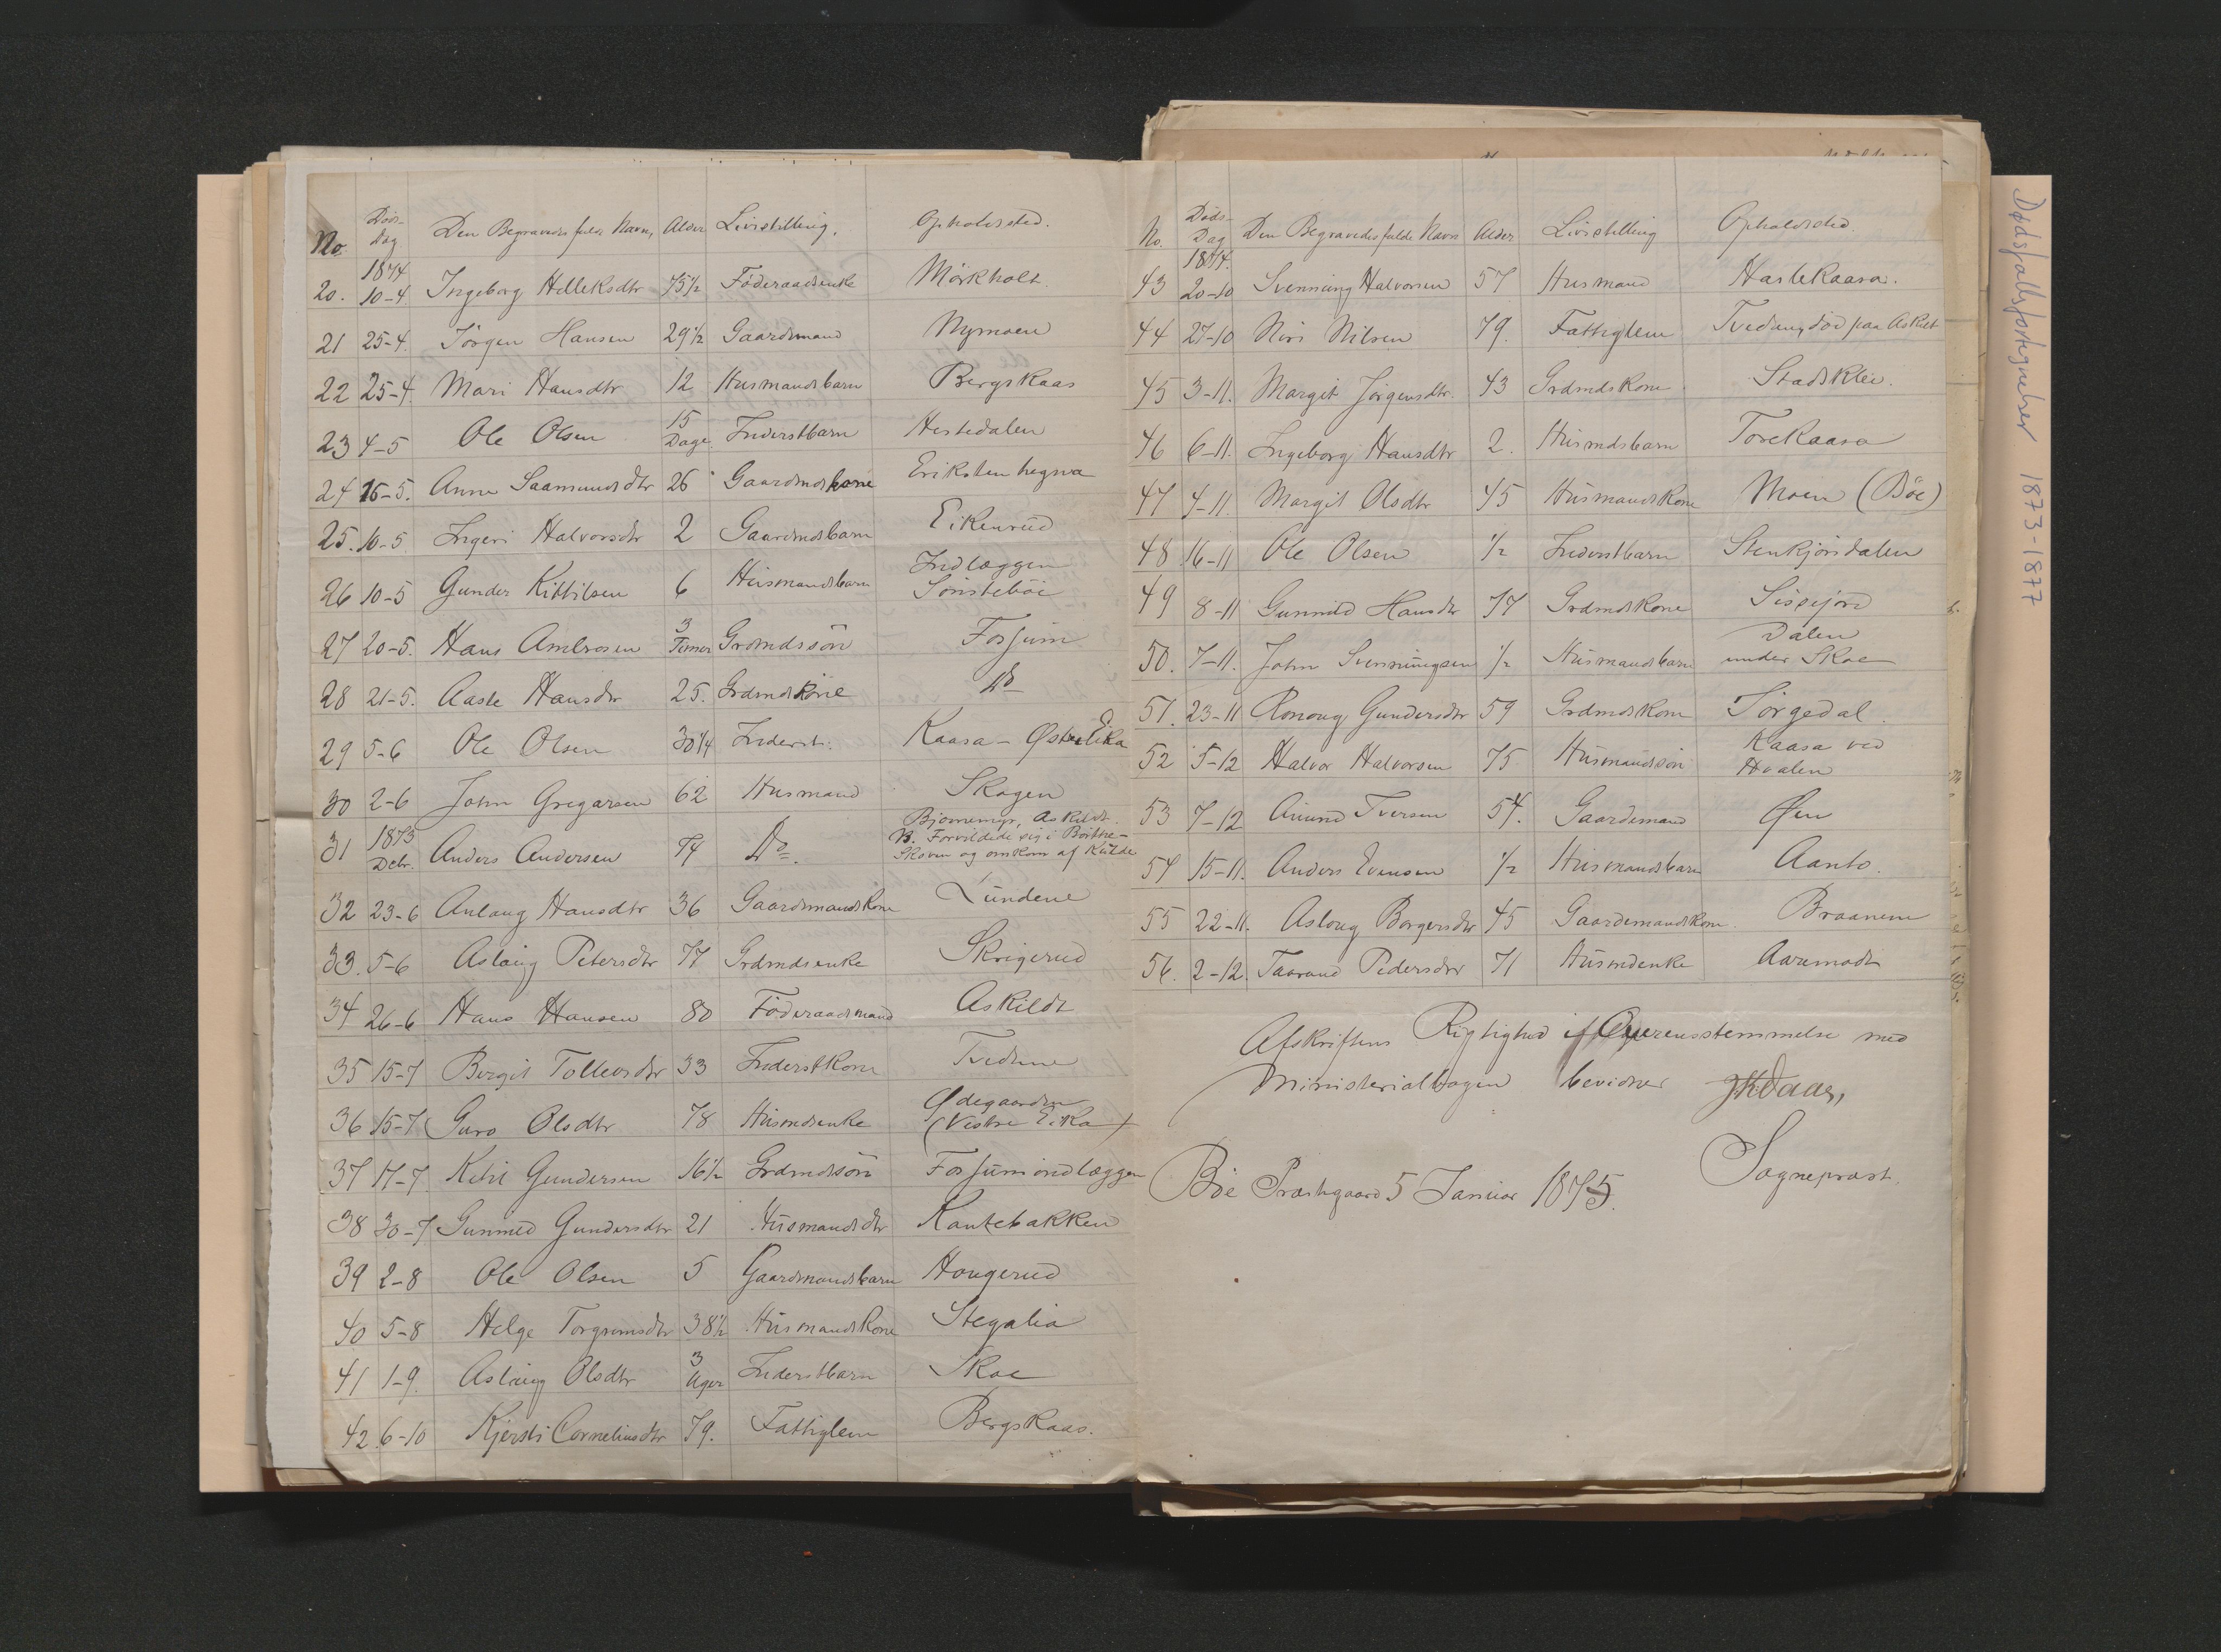 No. Døds-Dag Den Begravedes fulde Navn, Alder Livsstilling. Opholdssted.
1874
20. 10-4. Ingeborg Helleksdtr 75 1/2 Föderaadsenke Mörkholt.
21 25-4. Jörgen Hansen 29 1/2 Gaardmand Nymoen
22 25-4. Mari Hansdtr 12 Husmandsbarn Bergskaas
23 4-5 Ole Olsen 15 Dage Inderstbarn Hestedalen
24 15-5. Anne Saamundsdtr 26 Gaardmdskone Eriksteinhegna
25. 10-5 Ingeri Halvorsdtr 2 Gaardmdsbarn Eikenrud
26 10-5 Gunder Kittilsen 6 Husmandsbarn Indlæggen Sönsteböe
27 20-5. Hans Ambrosen 3 Timer Grdmdssön Forsum
28 21-5. Aaste Hansdtr 25. Grdmdskone Do
29 5-6 Ole Olsen 30 1/4 Inderst. Kaasa - Østre Eika
30 2-6 John Gregarsen 62 Husmand Skogen
31 1873 Debr. Anders Andersen 74 Do. Bjørnemyr, Askildt.
NB. Forvildede sig i
Skoven og omkom af Kulde
32 23-6 Anlaug Hansdtr 36 Gaardmandskone Lundene
33. 5-6 Aslaug Petersdtr 77 Grdmdsenke Skrigerud
34 26-6 Hans Hansen 80 Föderaadsmand Askildt
35 15-7 Bergit Tollevsdtr 33 Inderstkone Tvedene
36 15-7 Guro Olsdtr 78 Husmdsenke Ødegaarden (Vestre Eika)
37 17-7. Ketil Gundersen 16 1/2 Grdmdssön Forsumindlæggen
38 30-7 Gunnild Gundersdtr 21 Husmandsdtr Kaatebakken
39 2-8 Ole Olsen 5 Gaardmandsbarn Haugerud
40 5-8 Helge Torgrimsdtr 38 1/2 Husmandskone Stegalia
41 1-9. Aslaug Olsdtr 3 Uger Inderstbarn Skoe
42. 6-10 Kjersti Corneliusdtr 79. Fattiglem Bergskaas.
No. Døds-Dag Den Begravedes fulde Navn Alder Livsstilling Opholdssted.
1874.
43 20-10 Svenning Halvorsen 57 Husmand Haslekaasa.
44 27-10 Niri Nilsen 79. Fattiglem Tvedan, död paa Askilt
45 3-11. Margit Jörgensdtr. 43 Grdmdskone Stadskleiv.
46 6-11. Ingeborg Hansdtr 2. Husmdsbarn Torekaasa
47 4-11 Margit Olsdtr 45 Husmandskone Moen (Böe)
48 16-11 Ole Olsen 1/2 Inderstbarn Stenkjöndalen
49 8-11 Gunnild Hansdtr 77 Grdmdskone Sisjord
50. 7-11. John Svenningsen 1/2 Husmandsbarn Dalen under Skoe
51. 23-11 Ronoug Gundersdtr 59 Grdmdskone Jörgedal.
52 5-12 Halvor Halvorsen 75 Husmandssön Kaasa ved Hvalen
53 7-12 Amund Iversen 54. Gaardemand Øen
54 15-11. Anders Evensen 1/2 Husmandsbarn Aanto.
55 22-11. Asloug Borgersdtr 45 Gaardemandskone. Braanene
56. 2-12. Taarand Pedersdtr 71 Husmdenke Aaremodt
Afskriftens Rigtighed i Overensstemmelse med
Ministerialbogen bevidner JKDaae,
Sogneprest.
Böe Præstegaard 5 Januar 1875.
Dødsfallsfortegnelser 1873-1877